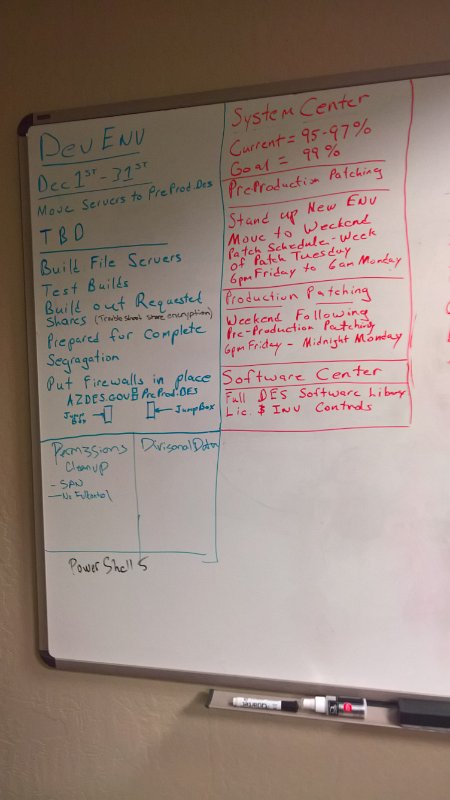 Dev Env
Dec 1st-31st
Move Servers to PreProd.Des
TBD
Build File Servers
Test Builds
Build out Requested
Shares (Troubleshoot share encryption)
Prepared for Complete
Segragation
Put Firewalls in place
AZDES.GOV PreProd.DES
Jump
Box
JumpBox
Permissions
Cleanup
- SAN
- No Fullcontrol
Divisonal Data
PowerShell 5
System Center
Current = 95-97%
Goal = 99%
PreProduction Patching
Stand up New Env
Move to Weekend
Patch Schedule - Week
of Patch Tuesday
6pm Friday to 6am Monday
Production Patching
Weekend Following
Pre-Production Patching
6pm Friday - Midnight Monday
Software Center
Full DES Software Library
Lic. $ Inv Controls
Quartet